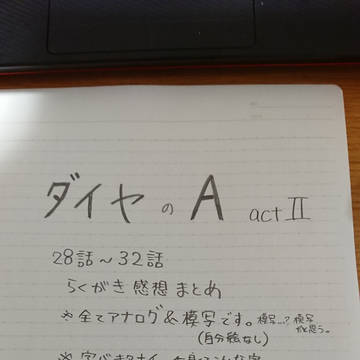 ダイヤのA actⅡ
28話～32話
らくがき感想まとめ
※全てアナログ&模写です。模写…?模写だと思う。
(自分絵なし)